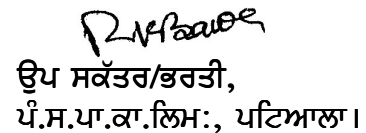 ਉਪ ਸਕੱਤਰ/ਭਰਤੀ,
ਪੰ.ਸ.ਪਾ.ਕਾ.ਲਿਮ:, ਪਟਿਆਲਾ।